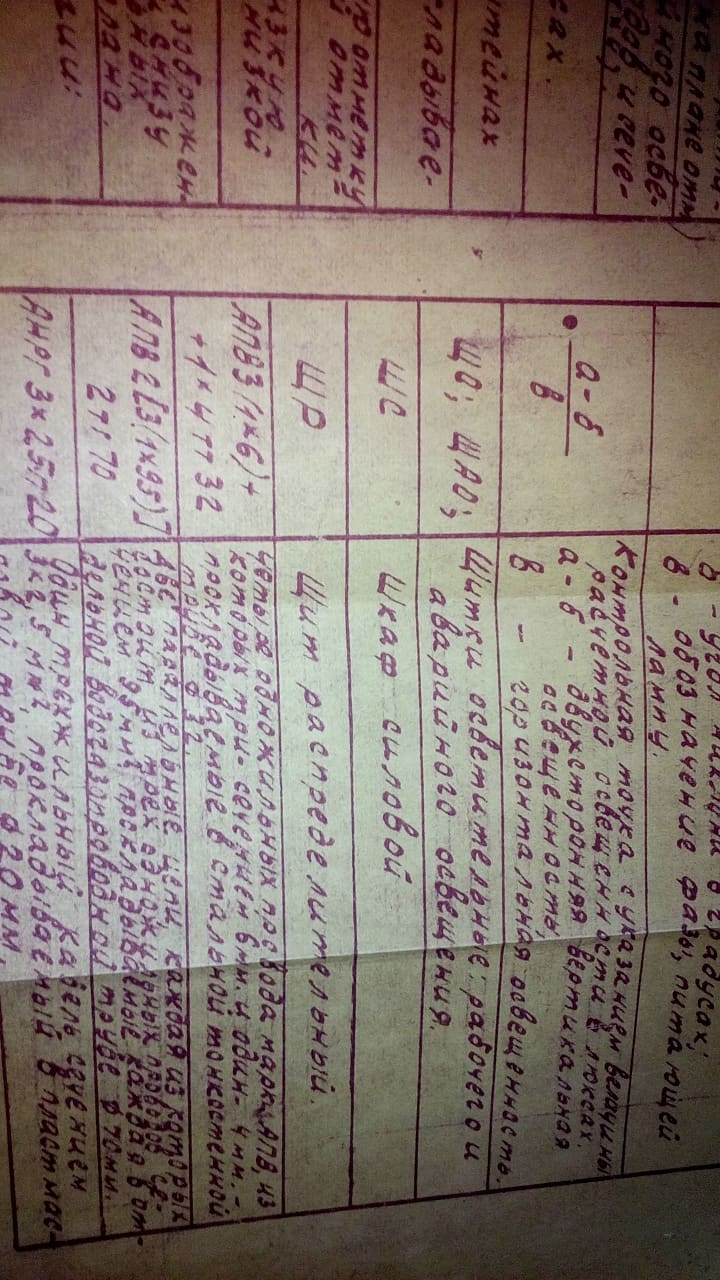 на плане отм
ного осве-
сах.
тейнах
ладывае-
отметку
отмет-
ки.
изкую
низкой
изображен.
снизу
лана.
ции:
б - угол наклона в градусах;
в - обозначение фазы, питающей
лампу.
• а-б
в
Контрольная точка с указанием величины
расчетной освещенности в люксах.
а-б - двухсторонняя вертикальная
освещенность,
в - горизонтальная освещенность.
ЩО; ЩАО;
Щитки осветительные рабочего и
аварийного освещения.
ШС
Шкаф силовой
ЩР
Щит распределительный.
АПВ3(1×6)+
+1×4 ТТ32
Четыре одножильных провода марки АПВ из
которых три- сечением 6мм. и один- 4 мм.-
прокладываемые в стальной тонкостенной
трубе ф 32.
АПВ 2[3(1×95)]
2Т570
Две параллельные цепи, каждая из которых
состоит из трех одножильных проводов се-
чением 95мм², прокладываемые каждая в от-
дельной водогазопроводной трубе ф 70мм.
АНРГ 3×2.5П20
Один трехжильный кабель сечением
3×2,5 мм², прокладываемый в пластмас-
трубе ф 20 мм.